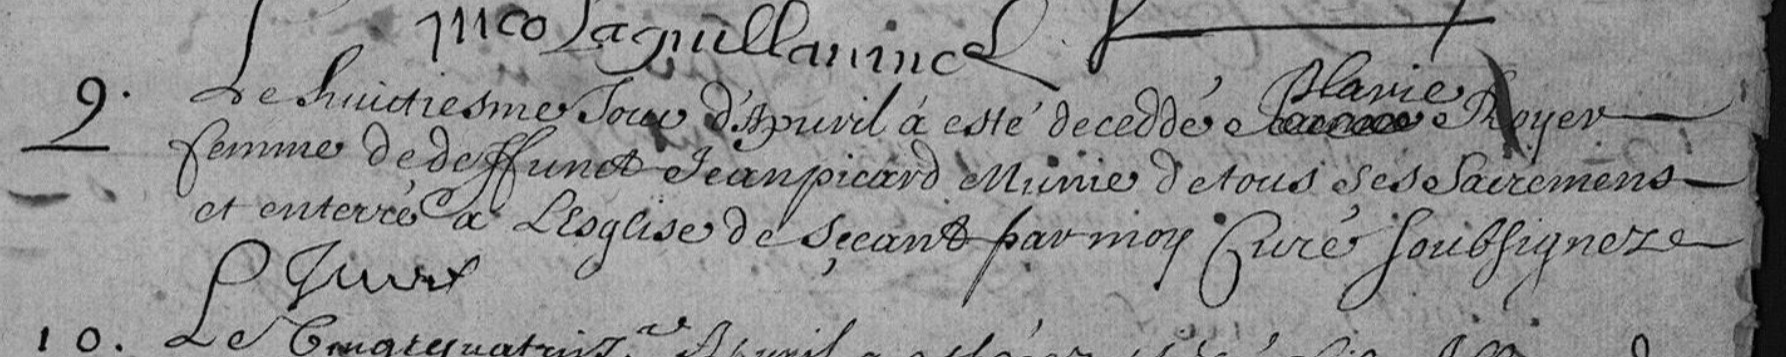 nico Laguillaume
9. Le huictiesme Jour d'Apuvril á esté deceddé Clavie Royer
femme de deffunct Jean picard Munie de tous Ses Sacremens
et enterré a L'Esglise de par moy Curé soubsignez
10. Le Apuvril a